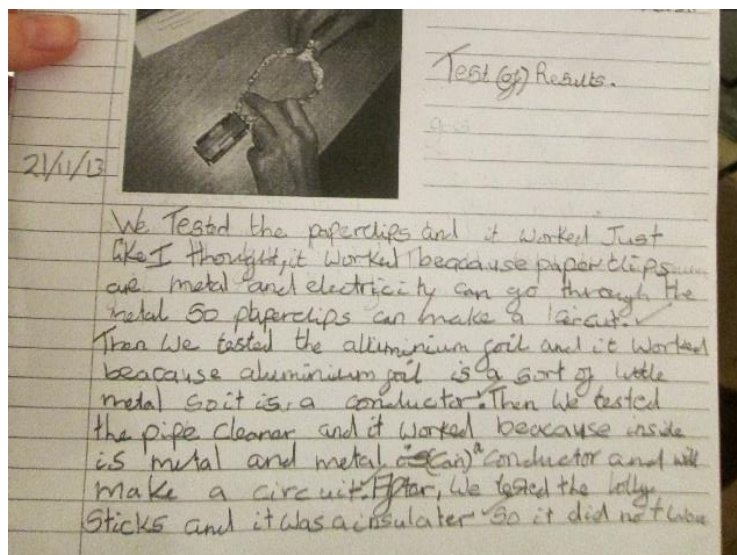 Test (of) Results.
21/11/13
We Tested the paperclips and it worked Just
like I thought, it worked beacause paper clips
are metal and electricity can go through the
metal so paperclips can make a circut.
Then We tested the alluminium foil and it worked
beacause aluminium foil is a sort of little
metal so it is a conductor. Then We tested
the pipe cleaner and it worked beacause inside
is metal and metal is (an) a conductor and will
make a circuit. After, We tested the lolly
sticks and it was a insulater so it did not